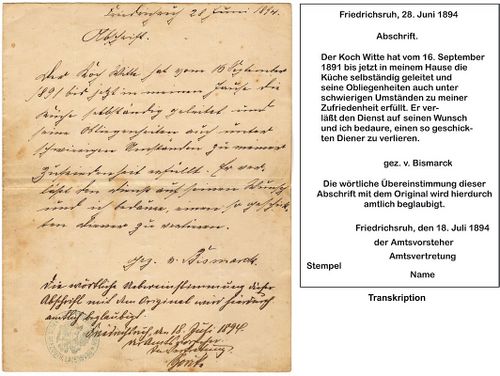 Friedrichsruh 28 Juni 1894.
Abschrift.
Der Koch Witte hat vom 16 September
1891 bis jetzt in meinem Hause die
Küche selbständig geleitet und
seine Obliegenheiten auch unter
schwierigen Umständen zu meiner
Zufriedenheit erfüllt. Er ver-
läßt den Dienst auf seinen Wunsch
und ich bedaure, einen so geschick-
ten Diener zu verlieren.
gez. v. Bismarck.
Die wörtliche Uebereinstimmung dieser
Abschrift mit dem Original wird hierdurch
amtlich beglaubigt.
Friedrichsruh, den 18. Juli 1894.
der Amtsvorsteher
In Vertretung
Friedrichsruh, 28. Juni 1894
Abschrift.
Der Koch Witte hat vom 16. September
1891 bis jetzt in meinem Hause die
Küche selbständig geleitet und
seine Obliegenheiten auch unter
schwierigen Umständen zu meiner
Zufriedenheit erfüllt. Er ver-
läßt den Dienst auf seinen Wunsch
und ich bedaure, einen so geschick-
ten Diener zu verlieren.
gez. v. Bismarck
Die wörtliche Übereinstimmung dieser
Abschrift mit dem Original wird hierdurch
amtlich beglaubigt.
Friedrichsruh, den 18. Juli 1894
der Amtsvorsteher
Amtsvertretung
Stempel
Name
Transkription